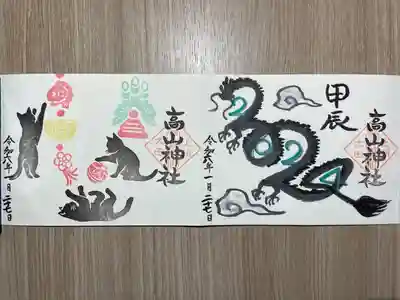 高山神社
甲辰
2024
令和六年一月二七日
高山神社
令和六年一月二七日